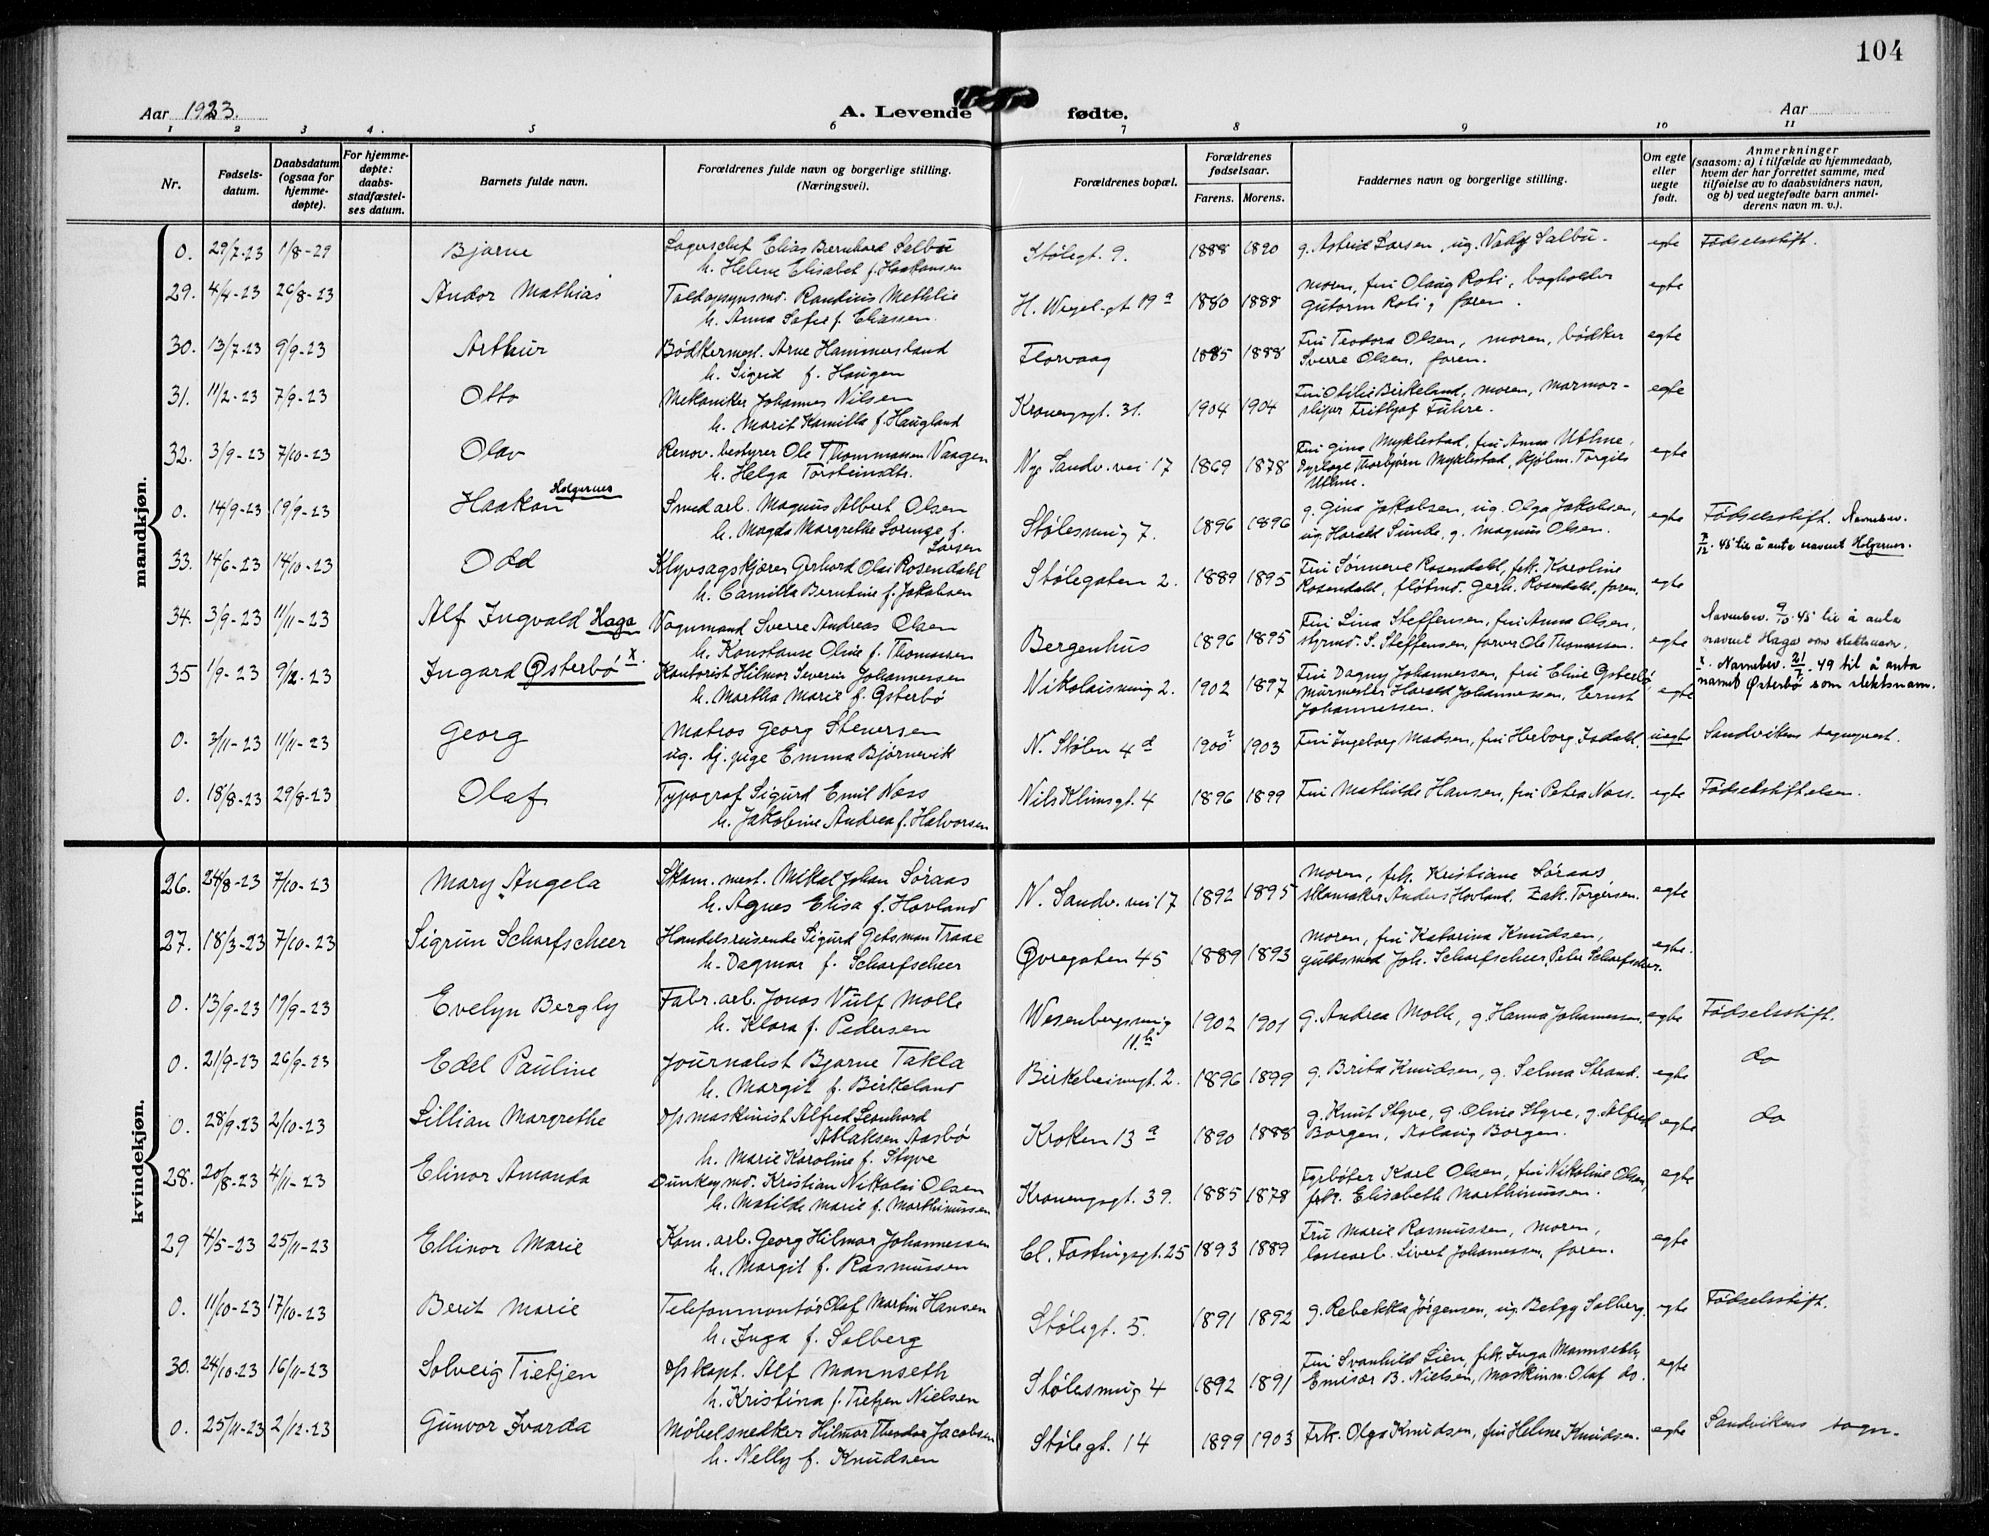 104
Aar 1923.
A. Levende fødte.
Aar
1 2 3 4. 5 6 7 8 9 10 11
Nr.
Fødsels-
datum.
Daabsdatum
(ogsaa for
hjemme-
døpte).
For hjemme-
døpte:
daabs-
stadfæstel-
ses datum.
Barnets fulde navn.
Forældrenes fulde navn og borgerlige stilling.
(Næringsvei).
Forældrenes bopæl.
Forældrenes
fødselsaar.
Farens. Morens.
Faddernes navn og borgerlige stilling.
Om egte
eller
uegte
født.
Anmerkninger
(saasom: a) i tilfælde av hjemmedaab,
hvem der har forrettet samme, med
tilføielse av to daabsvidners navn,
og b) ved uegtefødte barn anmel-
derens navn m. v.).
mandkjøn.
0. 29/7-23 1/8-29 Bjarne Lagerchef Elias Bernhard Salbu Stølegt. 9. 1888 1890 g. Astrid Larsen, ug. Salbu. egte Fødselsstift.
h. Helene Elisabet f. Haakonsen
29. 4/4-23 26/8-23 Andor Mathias Toldopsynsmd. Randius Methlie H. Wegel.gt 19a 1880 1888 moren, fru Olaug Roti, bogholder egte
h. Anna Sofie f. Eliassen. Gutorm Roti, faren.
30. 13/7-23 9/9-23 Arthur Bødkermest. Arne Hammersland Florvaag 1885 1888 Fru Teodora Olsen, moren, bødker egte
h. Sigrid f. Haugen Sverre Olsen, faren.
31. 11/2-23 7/9-23 Otto Mekaniker Johannes Nilsen Kronengsgt. 31. 1904 1904 Fru Otilie Birkeland, moren, marmor- egte
h. Marit Kamilla f. Haugland sliper Frithjof Führe.
32. 3/9-23 7/10-23 Olav Renov. bestyrer Ole Thommassen Vaagen Nye Sandv. vei 17 1869 1878 Fru Gina Myklestad, fru Anna Uthne, egte
h. Helga Torsteinsdtr. Thorbjørn Myklestad, Torgils
Uthne.
0. 14/9-23 19/9-23 Haakon Holgernes Smed arb. Magnus Albert Olsen Stølesmug 7. 1896 1896 g. Gina Jakobsen, ug. Olga Jakobsen, egte Fødselsstift. Navnebev.
h. Magda Margrethe Lorenze f. ug. Harald Sunde, g. Magnus Olsen. 12. 45 til å anta navnet Holgernes.
Larsen
33. 14/6-23 14/10-23 Odd Klyvsagskjærer Gerhard Olai Rosendahl Stølegaten 2. 1889 1895 Fru Sønneve Rosendahl, frk. Karoline egte
h. Camilla Berntine f. Jakobsen Rosendahl, Gerh. Rosendahl, faren.
34. 3/9-23 11/11-23 Alf Ingvald Haga Vognmand Sverre Andreas Olsen Bergenhus 1896 1895 Fru Lina Steffensen, fru Anna Olsen, egte Navnebev. 9/10. 45 til å anta
h. Konstanse Oline f. Thomassen styrmd. S. Steffensen, farver Ole Thomassen. navnet Haga som slektsnavn.
35 1/9-23 9/12-23 Ingard Østerbø x. Kontorist Hilmar Severin Johannessen Nikolaismug 2. 1902 1897 Fru Dagny Johannessen, fru Eline Østerbø, egte x. Navnebev. 21/7. 49 til å anta
h. Martha Marie f. Østerbø Murmester Harald Johannessen, Ernst navnet Østerbø som slektsnavn.
Johannessen.
0. 3/11-23 11/11-23 Georg Matros Georg Stenersen N. Stølen 4d 1900? 1903 Fru Ingeborg Madsen, fru Herborg Isdahl. uegte Sandvikens sogneprest.
ug. tj. pige Emma Bjørnevik
0. 18/8-23 29/8-23 Olaf Typograf Sigurd Emil Næss Nils Klimsgt. 4 1896 1899 Fru Mathilde Hansen, fru Petra Næss. egte Fødselsstiftelsen.
h. Jakobine Andrea f. Halvorsen
kvindekjøn.
26. 24/8-23 7/10-23 Mary Angela Skom. mest. Mikal Johan Søraas N. Sandv. vei 17 1892 1895 moren, frk. Kristiane Søraas egte
h. Agnes Elisa f. Hovland skomaker Anders Hovland. Zak. Torgersen.
27. 18/3-23 7/10-23 Sigrun Scharfscheer Handelsreisende Sigurd Getsman Traae Øvregaten 45 1889 1893 moren, fru Katarina Knudsen, egte.
h. Dagmar f. Scharfscheer guldsmed Joh. Scharfscheer, Peter Scharfscheer.
0. 13/9-23 19/9-23 Evelyn Bergly Fabr. arb. Jonas Vulf Molle Wesenbergsmug 11.b 1902 1901 g. Andrea Molle, g Hanna Johannessen. egte Fødselsstift.
h. Klara f. Pedersen
0. 21/9-23 26/9-23 Edel Pauline Journalist Bjarne Takla Birkebeinergt. 2. 1896 1899 g. Brita Knudsen, g. Selma Strand. egte do
h. Margit f. Birkeland
0. 28/9-23 2/10-23 Lillian Margrethe Dpsmaskinist Alfred Leonhard Kroken 13a 1890 1888 g. Knut Styve, g. Oline Styve, g. Alfred egte do
Atlaksen Aasbø Borgen, Aslaug Borgen.
h. Marie Karoline f. Styve
28. 20/8-23 4/11-23 Elinor Amanda Dunkeymd. Kristian Nikolai Olsen Kronengsgt. 39. 1885 1878 Fyrbøter Karl Olsen, fru Nikoline Olsen, egte
h. Matilde Marie f. Marthinussen frk. Elisabeth Marthinussen.
29 4/5-23 25/11-23 Ellinor Marie Kom. arb. Georg Hilmar Johannessen Cl. Fastingsgt. 25 1893 1889 Fru Marie Rasmussen, moren, egte
h. Margit f. Rasmussen lossearb. Sivert Johannessen, faren.
0. 11/10-23 17/10-23 Berit Marie Telefonmontør Olaf Martin Hansen Stølegt. 5. 1891 1892 g. Rebekka Jørgensen, ug. Betzy Solberg. egte Fødselsstift.
h. Inga f. Solberg
30. 24/10-23 16/11-23 Solveig Tietjen Dpskapt. Alf Mannseth Stølesmug 4 1892 1891 Fru Svanhild Lien, frk. Inga Mannseth, egte
h. Kristina f. Tietjen Nielsen Emisær B. Nielsen, maskinm. Olaf do.
0. 25/11-23 2/12-23 Gunvor Ivarda Møbelsnedker Hilmar Theodor Jacobsen Stølegt. 14 1899 1903 Frk. Olga Knudsen, fru Helene Knudsen. egte Sandvikens sogn.
h. Nelly f. Knudsen